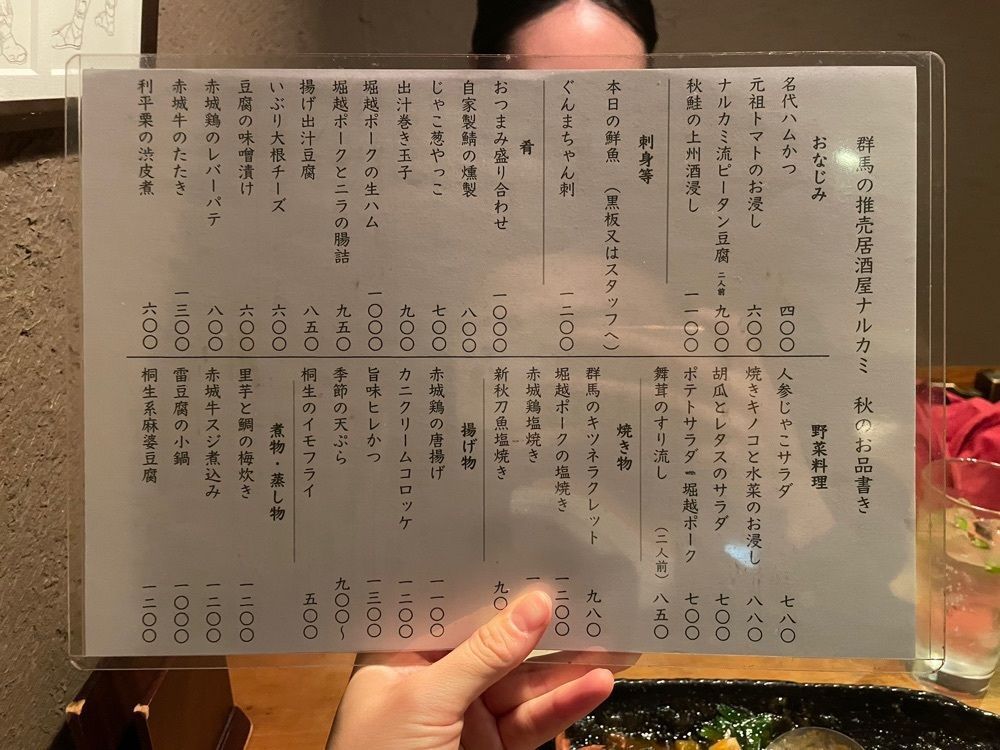 群馬の推売居酒屋ナルカミ 秋のお品書き
おなじみ
名代ハムかつ 四〇〇
元祖トマトのお浸し 六〇〇
ナルカミ流ピータン豆腐 二人前 九〇〇
秋鮭の上州酒浸し 一一〇〇
刺身等
本日の鮮魚 (黒板又はスタッフへ)
ぐんまちゃん刺 一二〇〇
肴
おつまみ盛り合わせ 一〇〇〇
自家製鯖の燻製 八〇〇
じゃこ葱やっこ 七〇〇
出汁巻き玉子 九〇〇
堀越ポークの生ハム 一〇〇〇
堀越ポークとニラの腸詰 九五〇
揚げ出汁豆腐 八五〇
いぶり大根チーズ 六〇〇
豆腐の味噌漬け 六〇〇
赤城鶏のレバーパテ 八〇〇
赤城牛のたたき 一三〇〇
利平栗の渋皮煮 六〇〇
野菜料理
人参じゃこサラダ 七八〇
焼きキノコと水菜のお浸し 八八〇
胡瓜とレタスのサラダ 七〇〇
ポテトサラダ 堀越ポーク 七〇〇
舞茸のすり流し (二人前) 八五〇
焼き物
群馬のキツネラクレット 九八〇
堀越ポークの塩焼き 一二〇〇
赤城鶏塩焼き 一
新秋刀魚塩焼き 九〇
揚げ物
赤城鶏の唐揚げ 一一〇〇
カニクリームコロッケ 一二〇〇
旨味ヒレかつ 一三〇〇
季節の天ぷら 九〇〇~
桐生のイモフライ 五〇〇
煮物・蒸し物
里芋と鯛の梅炊き 一二〇〇
赤城牛スジ煮込み 一二〇〇
雷豆腐の小鍋 一〇〇〇
桐生系麻婆豆腐 一二〇〇